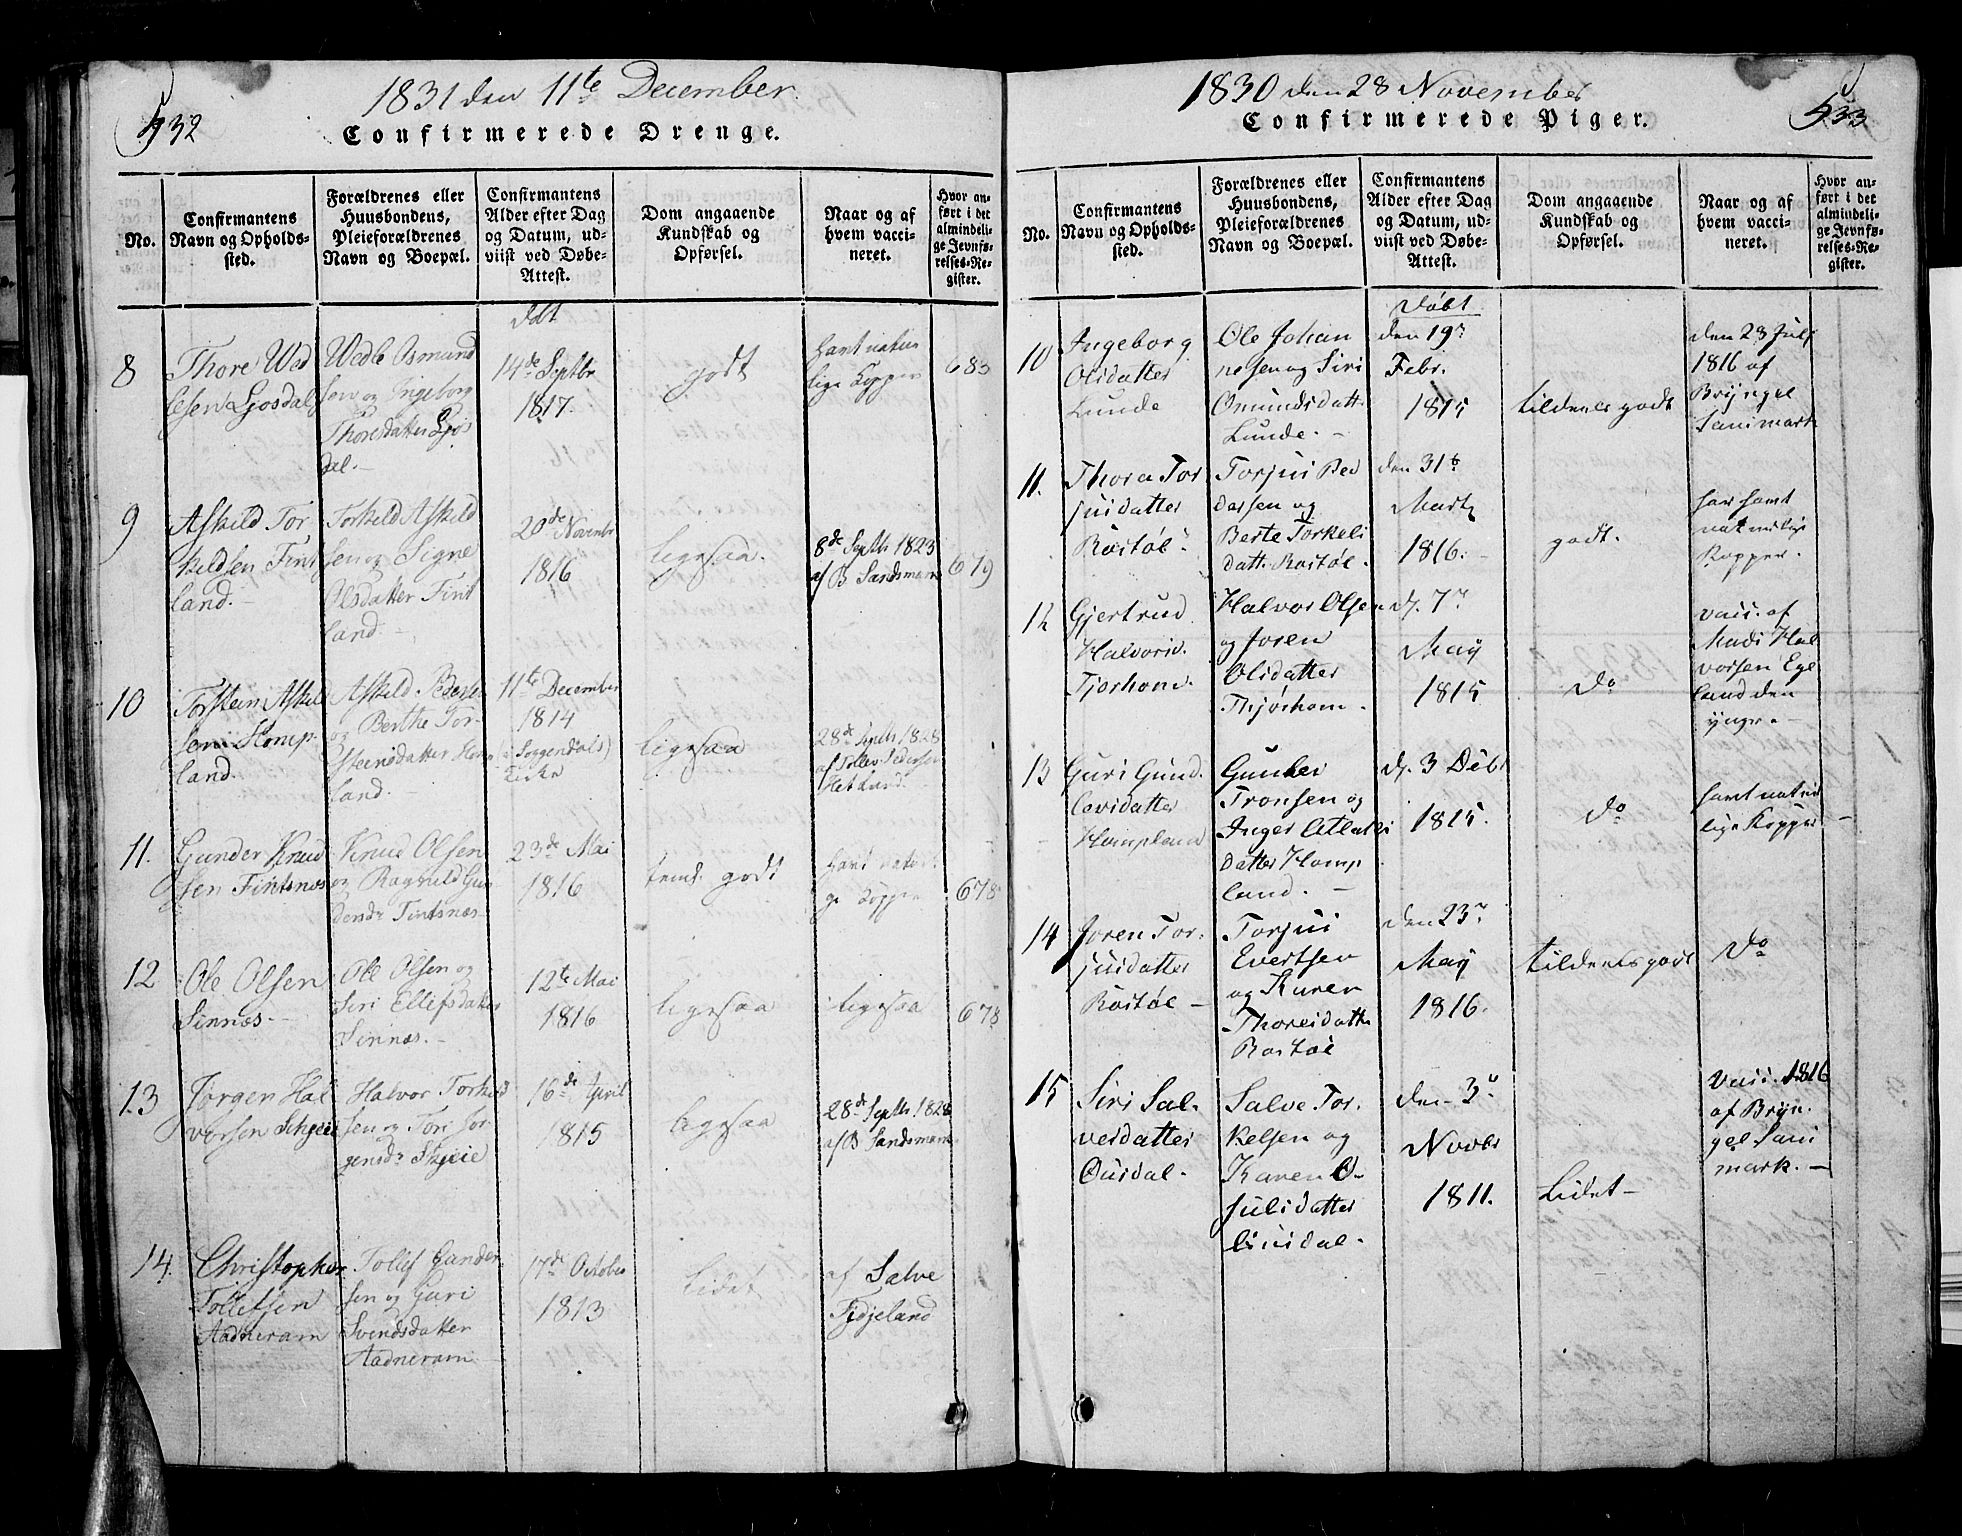 532
1831 den 11te December.
Confirmerede Drenge.
No.
Confirmantens
Navn og Opholds-
sted.
Forældrenes eller
Huusbondens,
Pleieforældrenes
Navn og Boepæl.
Confirmantens
Alder efter Dag
og Datum, ud-
viist ved Døbe-
Attest.
Dom angaaende
Kundskab og
Opførsel.
Naar og af
hvem vacci-
neret.
Hvor an-
ført i det
almindeli-
ge Jevnfø-
relses-Re-
gister.
8
Thore Wed
lesen Ljosdal
Wedle Osmund
sen og Ingeborg
Thoresdatter Ljos
dal.-
døbt
14de Septbr
1817.
godt
havt natur
lige Kopper
683
9
Askild Tor
kildsen Fint
land.-
Torkild Askild
sen og Signe
Olsdatter Fint
land.-
20de Novembr
1816
ligesaa.
8de Septb 1823
af B Sandsmark
679
10
Torstein Askil
sen Homp-
land.
Askild Peders
og Berthe Tor-
steinsdatter Homp
land.-
11te December
1814
(i Soggendals)
Kirke
ligesaa
28de Septb 1828
af Tollev Pedersen
Hetland
11.
Gunder Knud
sen Fintsnæs
Knud Olsen
og Ragnild Gun
dersdr Tintsnæs
23de Mai
1816
tems. godt
havt naturli
ge Kopper
678
12
Ole Olsen
Sinnæs.-
Ole Olsen og
Siri Ellefsdatter
Sinnæs.-
12te Mai
1816
ligesaa
ligesaa
678
13
Jørgen Hal
vorsen Schjeie
Halvor Torkild
sen og Tori Jør
gensdr Skjeie
16de April
1815
ligesaa
28de Septb 1828
af B Sandsmark
14.
Christopher
Tollefsen
Aadneram
Tollef Gunder-
sen og Guri
Svendsdatter
Aadneram
17de October
1813
Lidet
af Salve
Fidjeland
1830 den 28 November
533
Confirmerede Piger.
No.
Confirmantens
Navn og Opholds-
sted.
Forældrenes eller
Huusbondens,
Pleieforældrenes
Navn og Boepæl.
Confirmantens
Alder efter Dag
og Datum, ud-
viist ved Døbe-
Attest.
Dom angaaende
Kundskab og
Opførsel.
Naar og af
hvem vacci-
neret.
Hvor an-
ført i det
almindeli-
ge Jevnfø-
relses-Re-
gister.
10
Ingeborg
Olsdatter
Lunde
Ole Johan
nesen og Siri
Omundsdatt.
Lunde.-
Døbt
den 19n
Febr.
1815
tildeels godt
den 23 Juli
1816 af
Bryngel
Sanmark
11.
Thora Tor
juisdatter
Rostøl.
Torjui Ped
dersen og
Berte Torkels
datt. Rostøl.
den 31te
Martz
1816.-
godt.
har havt
naturlige
Kopper.
12
Gjertrud
Halvorsd.
Tjorhom.
Halvor Olsen
og Joren
Olsdatter
Thjørhom.
d. 7n
May
1815
do
vacc. af
Mads Hal
vorsen Ege
land den
yngre-
13
Guri Gund.
levsdatter
Hompland
Gunlev
Tronsen og
Inger Atlaks
datter Homp
land.-
d. 3 Debr
1815.
do
havt natur
lige Kopper
14
Joren Tor-
juisdatter
Rostøl-
Torjui
Evertsen
og Karen
Thoresdatt.
Rostøl
den 23n
May
1816.
tildeels godt
do
15
Siri Sal.
vesdatter
Ousdal.
Salve Tor.
kelsen og
Karen O-
julsdatter
Ousdal.
den 3n
Novbr
1811.
Lidet-
Vacc. 1816
af Bryn.
gel San
mark.-